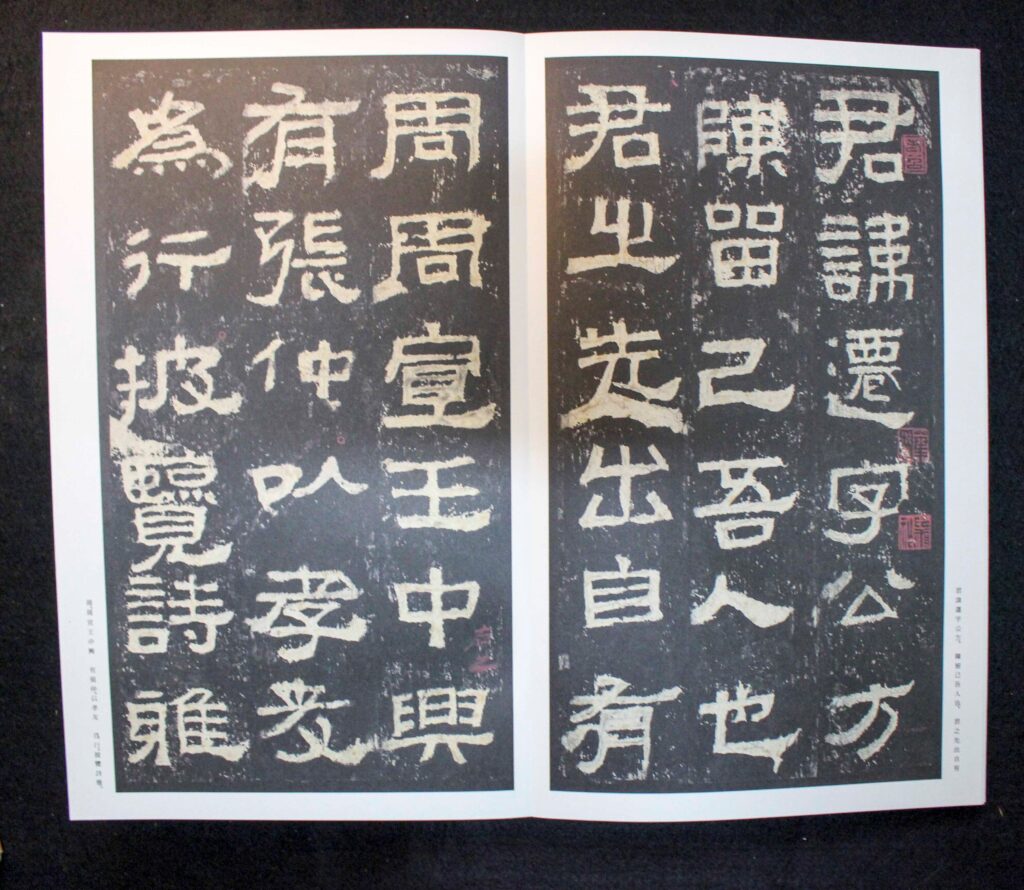 君諱遷字公方
陳留己吾人也
君之先出自有
周周宣王中興
有張仲以孝友
為行披覽詩雅
君諱遷字公方。陳留己吾人也。君之先出自有
周。周宣王中興。有張仲。以孝友。為行。披覽詩雅。